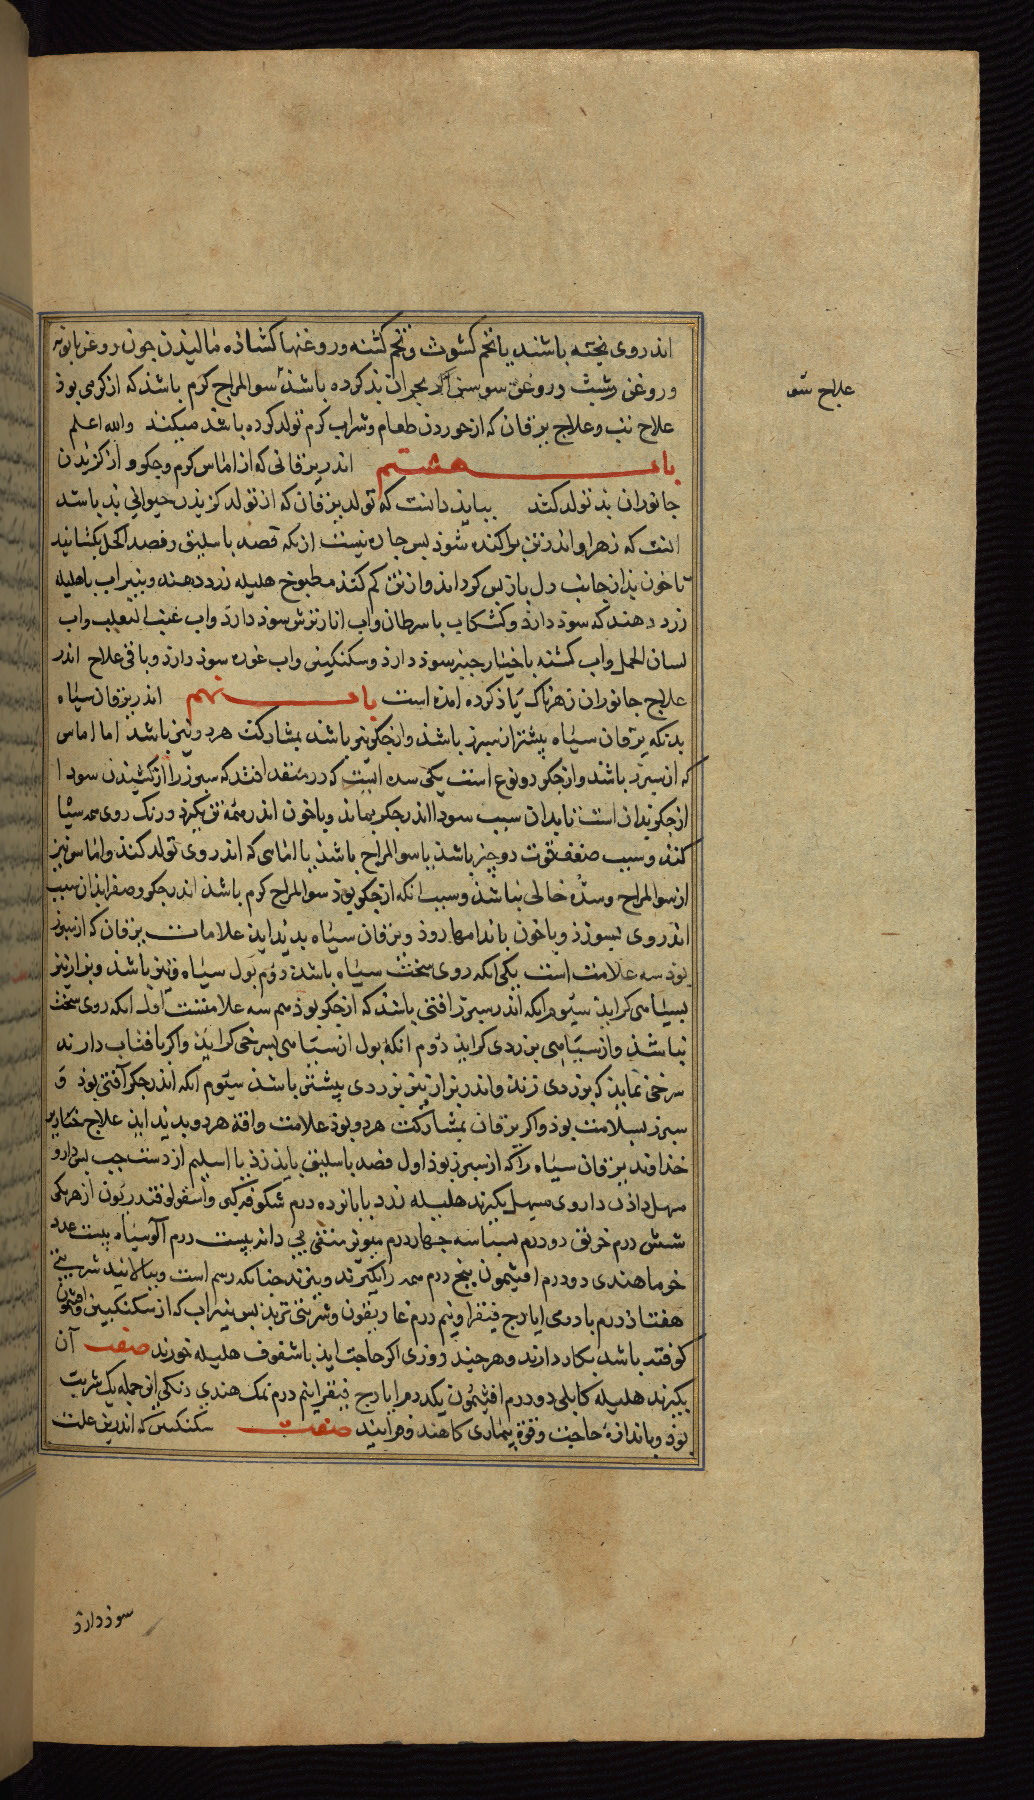 اندروی پخته باشند یا تخم کشوث و تخم کشنه و روغنها کشاذه مالیدن جون روغن بابونه
و روغن شبث و روغن سوسن اکر بحران بذ کرده باشذ سوالمزاج کرم باشذ که از کرمی بوذ
علاج تب و علاج یرقان که از خوردن طعام و شراب کرم تولد کرده باشد میکنند والله اعلم
باب هشتم اندر یرقانی که از اماس کرم و جکر و از کزیدن
جانوران بد تولد کند ببایذ دانست که تولد یرقان که از تولد کزیذن حیوانی بذ باشد
انست که زهر او اندر تن براکنده شوذ بس جاره نیست از انکه فصد باسلیق و فصد اکحل بکشایند
تا خون بدان جانب دل باز بس کرداند و از تن کم کنند مطبوخ هلیله زرد دهند و بنیراب با هلیله
زرد دهند که سوذ دارذ و کشکاب با سرطان و اب انار ترش سوذ دارد و اب عنب الثعلب و اب
لسان الحمل و اب کشنه با خیارجنبر سوذ دارذ و سکنکبین و اب غوره سوذ دارذ و باقی علاج اندر
علاج جانوران زهرناک یاذ کرده امذه است باب نهم اندر یرقان سیاه
بدانکه یرقان سیاه بیشتر از سبرز باشذ و از جکر نیز باشد بمشارکت هر دو نیز باشد اما اماس
که از سبرز باشد و از جکر دو نوع است یکی سده است که در منفذ افتد که سبرز را از کشیذن سودا
از جکر بذان است تا بدان سبب سودا اندر جکر بماند و با خون اندر همه تن بکذرد و رنک روی همه سیاه
کنذ و سبب ضعف قوت دو جیز باشذ یا سوالمزاج باشد یا اماسی که اندروی تولد کند و اماس نیز
از سوالمزاج و سده خالی نباشذ و سبب انکه از جکر بوذ سوالمزاج کرم باشذ اندر جکر و صفرا بذان سبب
اندروی بسوزذ و با خون باندامها روذ و یرقان سیاه بدید ایذ علامات یرقان که از سبرز
بوذ سه علامت است یکی انکه روی سخت سیاه باشد دوم بول سیاه و تیز باشذ و براز نیز
بسیاهی کراید سیوم انکه اندر سبرز افتی باشد که از جکر بوذ هم سه علامتست اول انکه روی سخت
نباشذ و از سیاهی بزردی کراید دوم انکه بول از سیاهی بسرخی کرایذ و اکر بافتاب دارند
سرخی نماید که بزردی زند و اندر براز نیز زردی بیشتر باشد سیوم انکه اندر جکر آفتی بوذ و
سبرز بسلامت بوذ و اکر یرقان بمشارکت هر دو بوذ علامت و افة هر دو بدید ایذ علاج
خداوند یرقان سیاه را که از سبرز بوذ اول فصد باسلیق بایذ زذ یا اسیلم از دست جب بس دارو
مسهل داذن داروی مسهل بکیرند هلیله زرد بابانزده درم شکوفه کبر و اسقولوقندریون از هر یکی
شش درم خربق دو درم بسباسه جهار درم مویز منقی بی دانه بیست درم آلو سیاه بیست عدد
خرما هندی دودرم افیثمون بنج درم همه را بکیرند و ببزند جنانکه رسم است و ببالایند شربتی
هفتاذ درم با درمی ایارج فیقرا و نیم درم غاریقون و شربتی تربذ بس بنیراب که از سکنکبین و افتیمون
کوفته باشد بکار دارند و هر جند روزی اکر حاجت ایذ با سفوف هلیله خورند صفت آن
بکیرند هلیله کابلی دو درم افثیمون یکدرم ایارج فیقرا نیم درم نمک هندی دانکی این جمله یک شربت
بوذ و باندازه حاجت و قوة بیماری کاهند و فزایند صفت سکنکبین که اندرین علت
علاج تب
سوذ دارذ